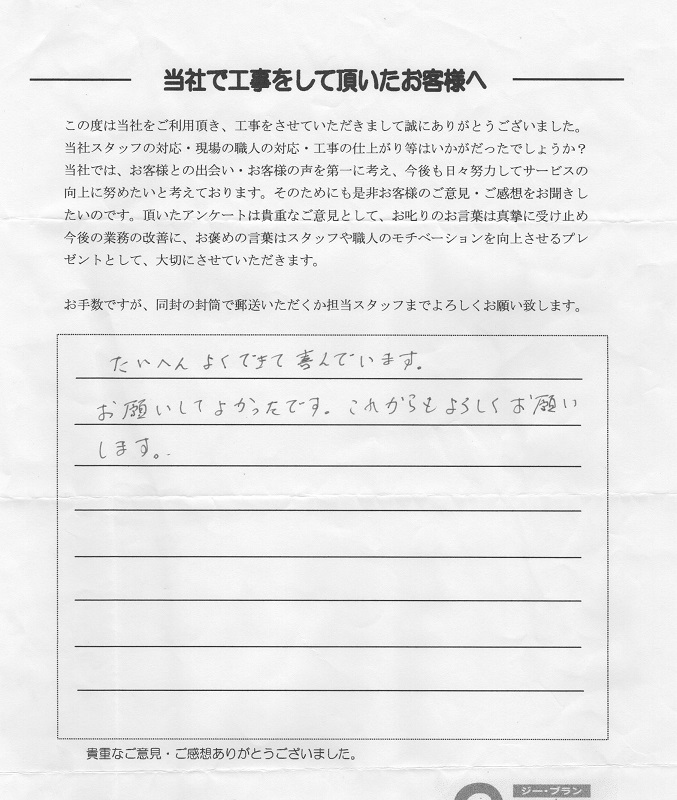 当社で工事をして頂いたお客様へ
この度は当社をご利用頂き、工事をさせていただきまして誠にありがとうございました。
当社スタッフの対応・現場の職人の対応・工事の仕上がり等はいかがだったでしょうか？
当社では、お客様との出会い・お客様の声を第一に考え、今後も日々努力してサービスの
向上に努めたいと考えております。そのためにも是非お客様のご意見・ご感想をお聞きし
たいのです。頂いたアンケートは貴重なご意見として、お叱りのお言葉は真摯に受け止め
今後の業務の改善に、お褒めの言葉はスタッフや職人のモチベーションを向上させるプレ
ゼントとして、大切にさせていただきます。
お手数ですが、同封の封筒で郵送いただくか担当スタッフまでよろしくお願い致します。
たいへんよくできて喜んでいます。
お願いしてよかったです。これからもよろしくお願い
します。
貴重なご意見・ご感想ありがとうございました。
ジー・プラン